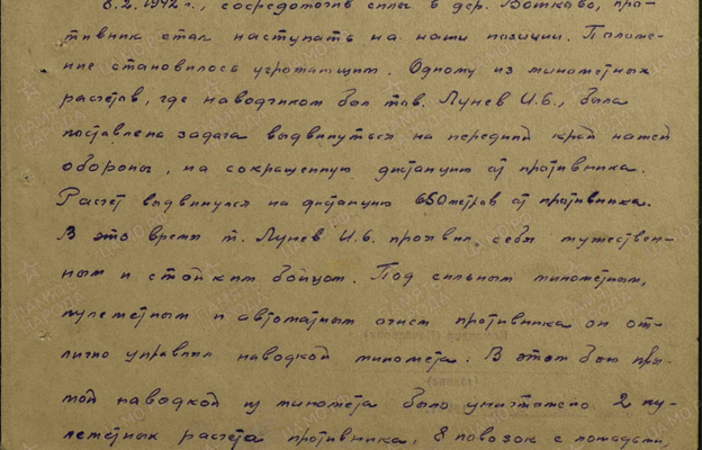 8.2.1942 г., сосредоточив силы в дер. Вотково, про-
тивник стал наступать на наши позиции. Положе-
ние становилось угрожающим. Одному из минометных
расчетов, где наводчиком был тов. Лунев И.В., была
поставлена задача выдвинуться на передний край нашей
обороны, на сокращенную дистанцию от противника.
Расчет выдвинулся на дистанцию 650 метров от противника.
В это время т. Лунев И.В. проявил себя мужествен-
ным и стойким бойцом. Под сильным минометным,
пулеметным и автоматным огнем противника он от-
лично управлял наводкой миномета. В этом бою пря-
мой наводкой из миномета было уничтожено 2 пу-
леметных расчета противника, 8 повозок с лошадьми,